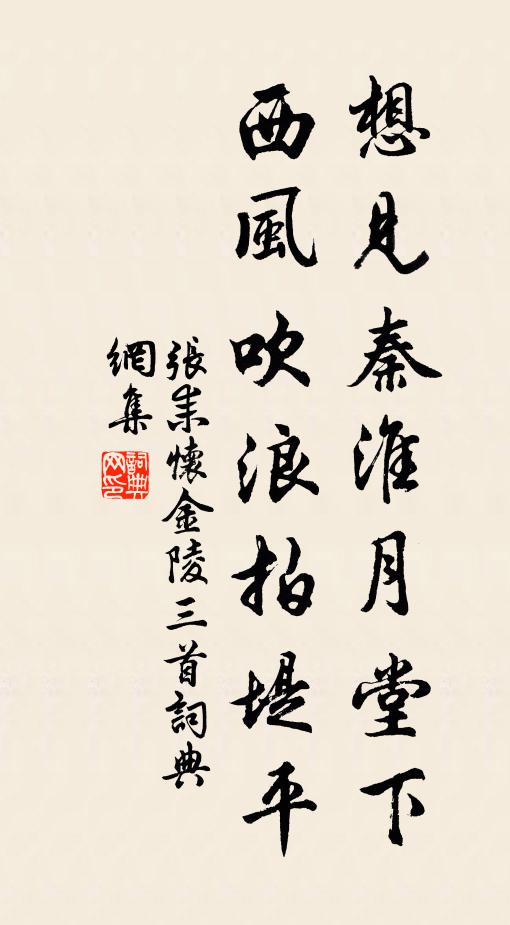 想見秦淮月堂下
西風吹浪拍堤平
張耒懷金陵三首詞典
網集
詞典網印